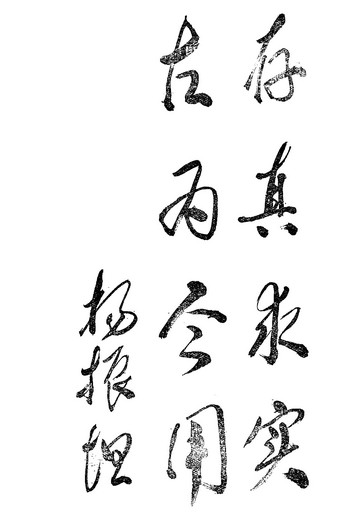 存真求实
古为今用
杨振坦